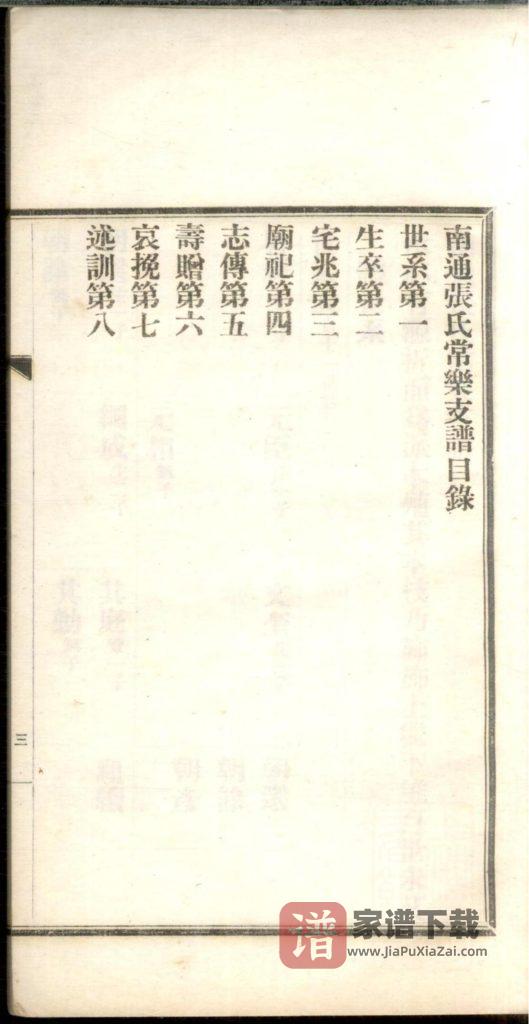 南通張氏常樂支譜目錄
世系第一
生卒第二
宅兆第三
廟祀第四
志傳第五
壽贈第六
哀挽第七
述訓第八
三
谱
家谱下载
www.JiaPuXiaZai.com